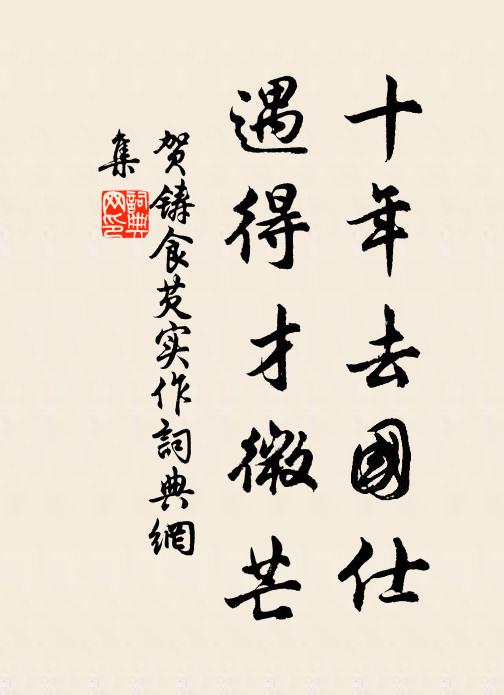 十年去國仕
遇得才微芒
贺铸食芡实作詞典網
集
詞典網印